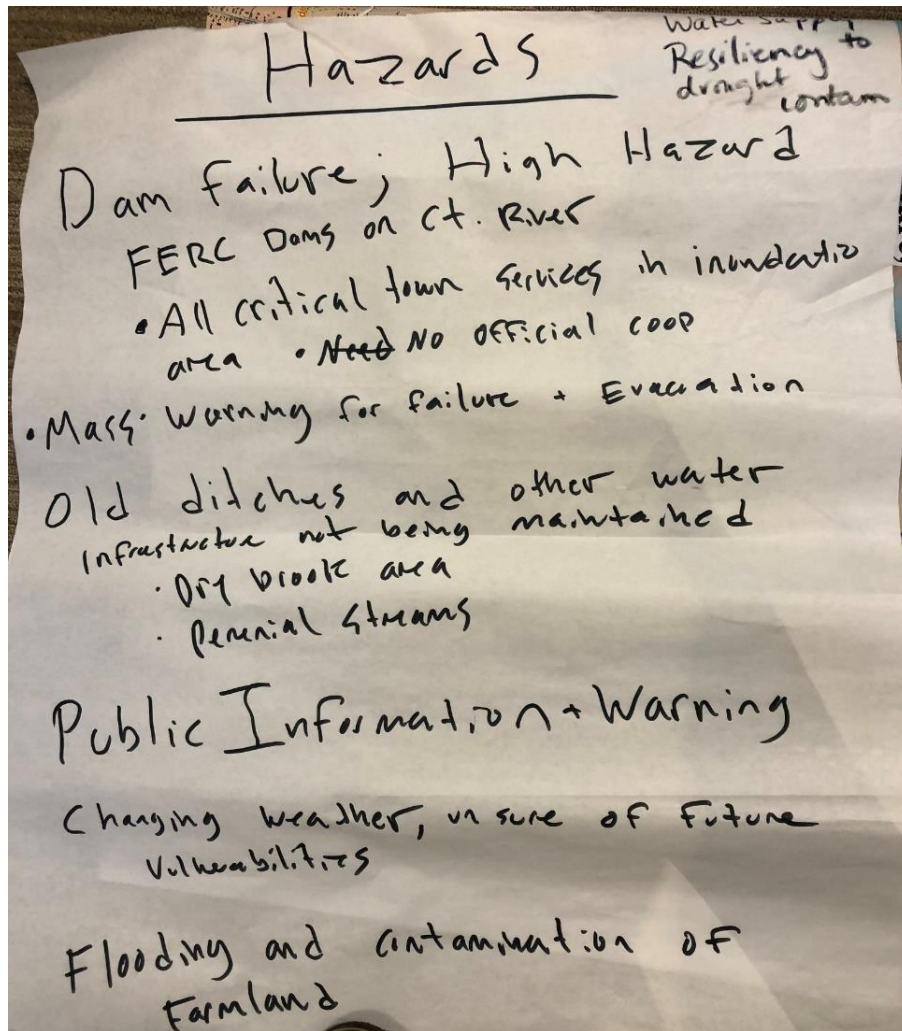 Hazards
Water supply
Resiliency to
drought
contam
Dam Failure; High Hazard
FERC Dams on Ct. River
• All critical town services in inundatio
area • Need No official coop
• Mass. Warning for failure + Evacuation
Old ditches and other water
Infrastructure not being maintained
• Dry brook area
• Perenial Streams
Public Information + Warning
Changing weather, unsure of future
Vulnerabilities
Flooding and contamination of
Farmland